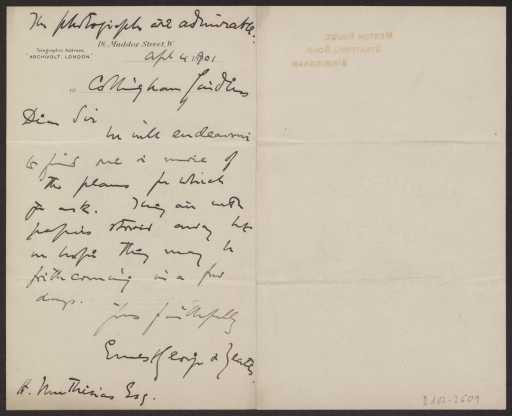 The photographs are admirable.
18, Maddox Street, W.
Telegraphic Address,
"ARCHVOLT, LONDON"
April 4 1901
Collingham Gardens
Dear Sir
We will endeavour
to find one or more of
the plans for which
you ask. They are with
papers stored away but
we hope they may be
forthcoming in a few
days.
Yours faithfully
Ernest George & Yeates
H. Muthesius Esq.